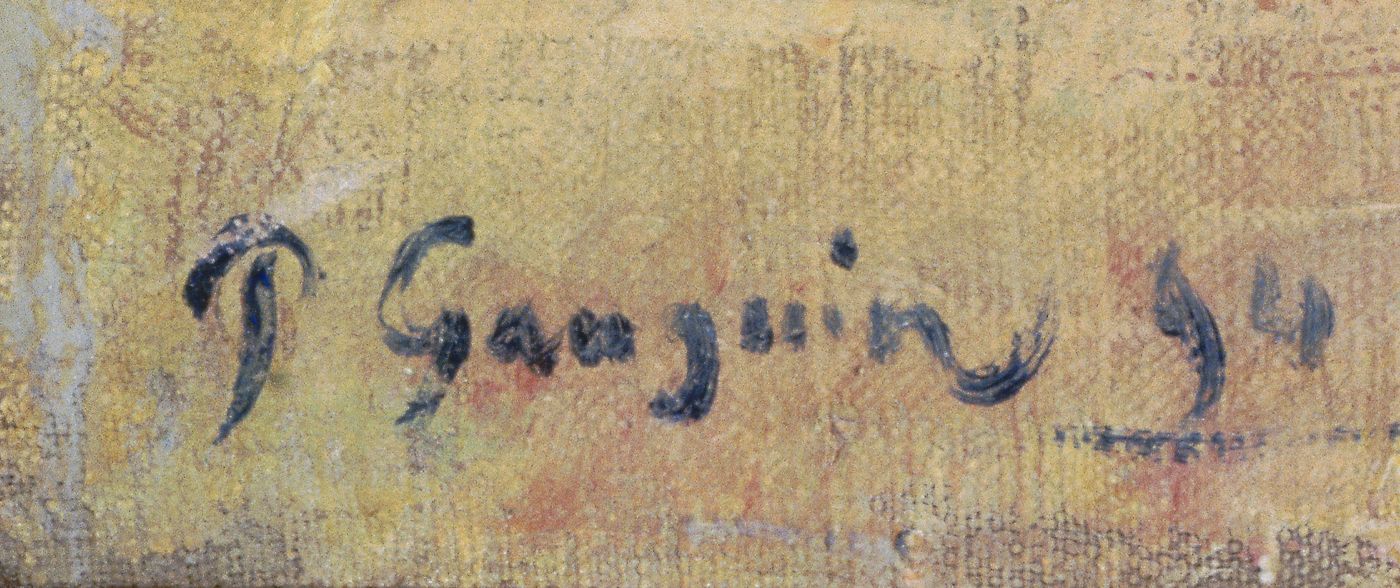 P Gauguin 94